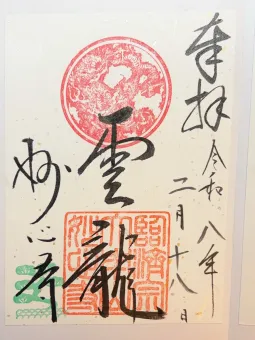 奉拝 令和八年
二月十八日
雲龍
妙心寺